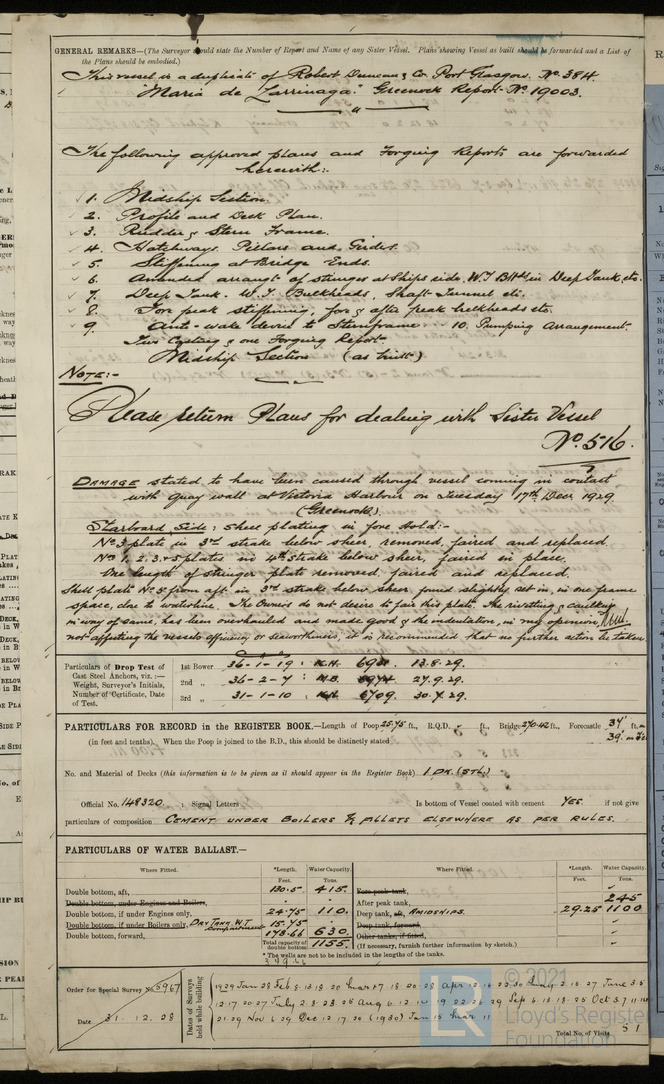 GENERAL REMARKS—(The Surveyor should state the Number of Report and Name of any Sister Vessel. Plans showing Vessel as built should be forwarded and a List of
the Plans should be embodied.)
This vessel is a duplicate of Robert Duncan & Co Port Glasgow. No. 384.
"Maria de Larrinaga." Greenock Report No 19003.
The following approved plans and Forging Reports are forwarded
herewith:-
1. Midship Section.
2. Profile and Deck Plan.
3. Rudder & Stern Frame.
4. Hatchways. Pillars and Girders.
5. Stiffening at Bridge Ends.
6. Amended arranst of stringer at Ships side, W.T. Bhd in Deep Tank, etc.
7. Deep Tank. W.T. Bulkheads, Shaft Tunnel etc.
8. Fore peak stiffening, fore & after peak bulkheads etc.
9. Anti-wake device to Sternframe 10. Pumping Arrangement
Two Casting & one Forging Report
Midship Section (as built)
NOTE:-
Please return Plans for dealing with Sister Vessel
No. 516.
DAMAGE stated to have been caused through vessel coming in contact
with quay wall at Victoria Harbour on Tuesday 17th Decr 1929
(Greenock).
Starboard Side: Shell plating in fore Hold:-
No 3 plate in 3rd strake below sheer, removed, faired and replaced.
Nos 1, 2, 3, & 5 plates in 4th strake below sheer, faired in place.
One length of stringer plate removed, faired and replaced.
Shell plate No 5 from aft in 3rd strake below sheer found slightly set in, in one frame
space, close to waterline. The Owners do not desire to fair this plate. The riveting & caulking
in way of same, has been overhauled and made good & the indentation, in my opinion,
not affecting the vessels efficiency or seaworthiness, it is recommended that no further action be taken
Particulars of Drop Test of
Cast Steel Anchors, viz.:—
Weight, Surveyor's Initials,
Number of Certificate, Date
of Test.
1st Bower 36-1-19: K.H. 13.8.29.
2nd „ 36-2-7: 27.9.29.
3rd „ 31-1-10: K.H. 6709. 30.7.29.
PARTICULARS FOR RECORD in the REGISTER BOOK.—Length of Poop 25.75 ft., R.Q.D. ft., Bridge 270.42 ft., Forecastle 34' ft.
39'
(in feet and tenths). When the Poop is joined to the B.D., this should be distinctly stated
No. and Material of Decks (this information is to be given as it should appear in the Register Book) 1 DK. (STL.)
Official No. 148320. ; Signal Letters Is bottom of Vessel coated with cement YES. if not give
particulars of composition CEMENT UNDER BOILERS & FILLETS ELSEWHERE AS PER RULES.
PARTICULARS OF WATER BALLAST.—
Where Fitted. *Length. Water Capacity. Where Fitted. *Length. Water Capacity.
Feet. Tons. Feet. Tons.
Double bottom, aft, 130.5 415. Fore peak tank,
Double bottom, under Engines and Boilers, After peak tank, 245
Double bottom, if under Engines only, 24.75 110. Deep tank, aft, AMIDSHIPS. 29.25 1100
Double bottom, if under Boilers only, DRY TANK W.T. compartment 15.75 Deep tank, forward,
Double bottom, forward, 178.66 630. Other tanks, if fitted,
Total capacity of double bottom 1155. (If necessary, furnish further information by sketch.)
* The wells are not to be included in the lengths of the tanks.
349.66
Order for Special Survey No. 5967
Date 31.12.28
Dates of Surveys held while building
1929 Jan 28 Feb 8.13.18.20
12.17.20.27 July 2.8.23.25 Aug 6.12.14.19.22.26.29 Sep 6.13.18.25 Oct 3.7.11
21.29 Nov 6.29 Dec 12.17.20 (1930) Jan 15 Mar 11
Total No. of Visits 51
© 2021
Lloyd's Register
Foundation
LR